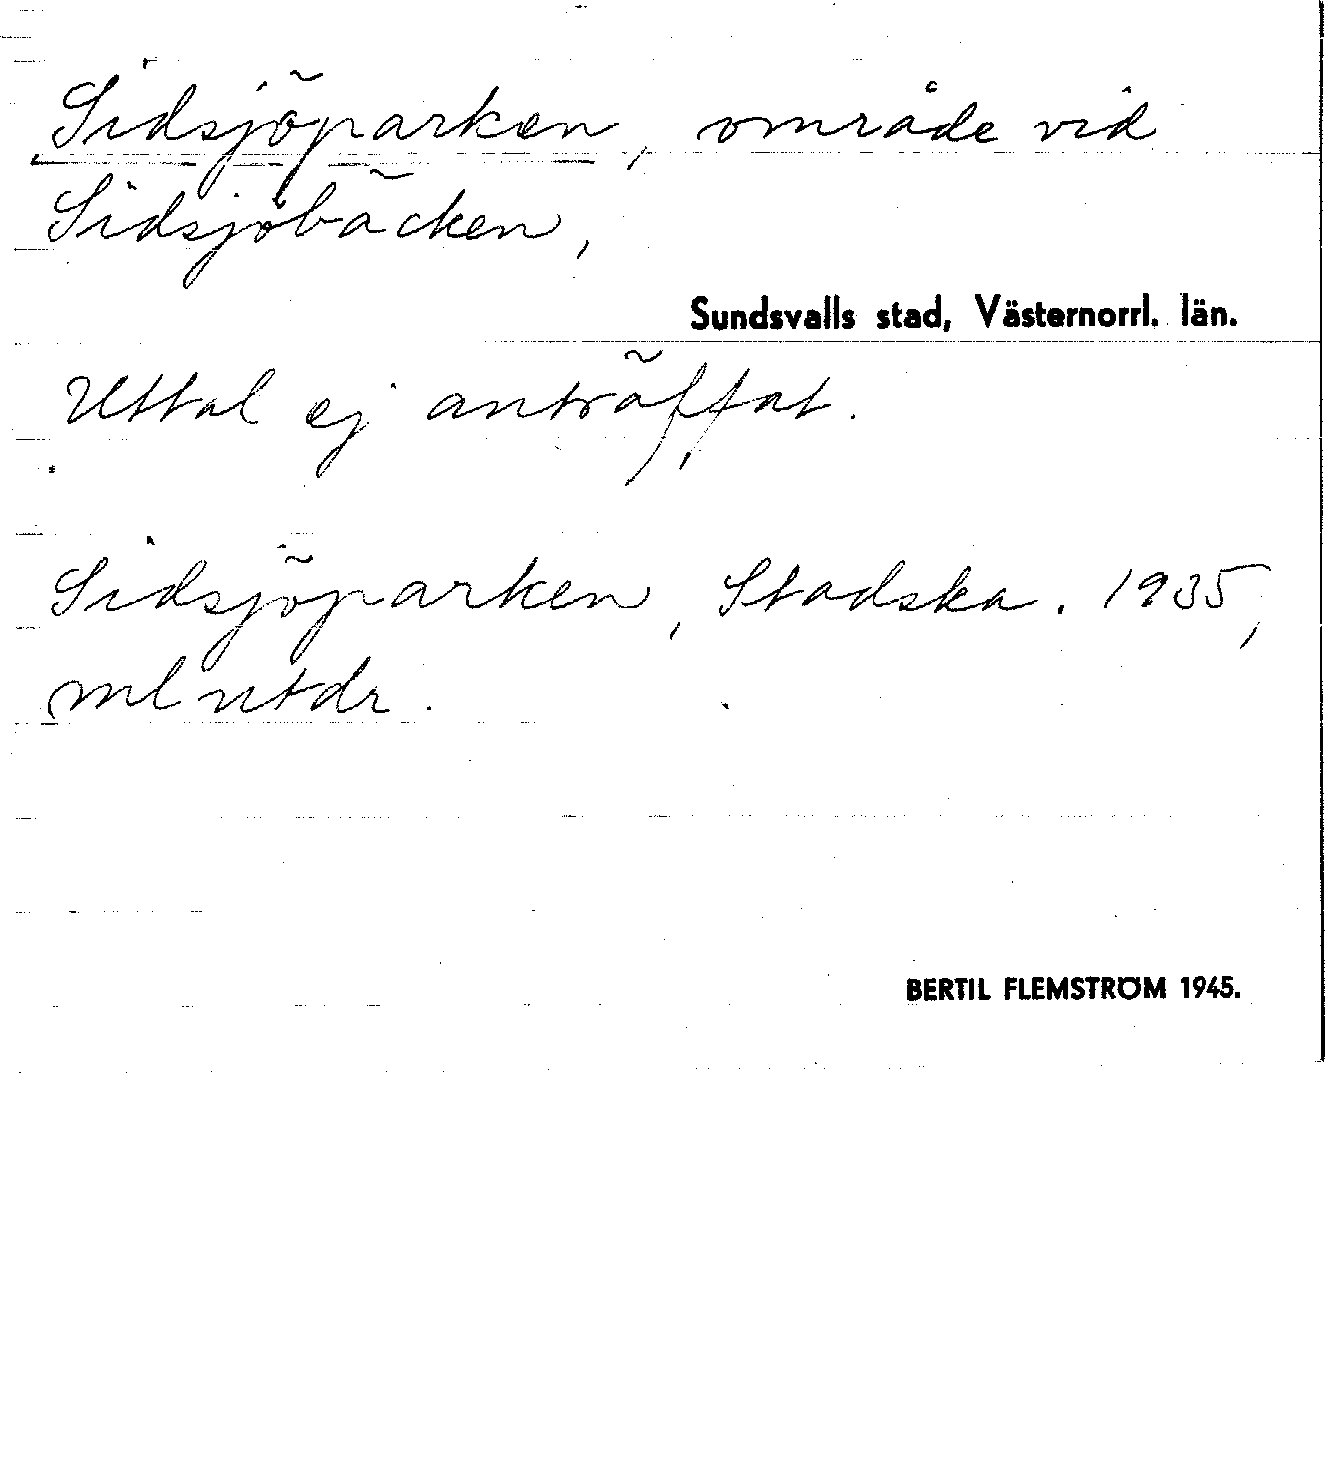 Sidsjöparken, område vid
Sidsjöbäcken,
Sundsvalls stad, Västernorrl. län.
Uttal ej anträffat.
Sidsjöparken, Stadska. 1935,
ml utdr.
BERTIL FLEMSTRÖM 1945.